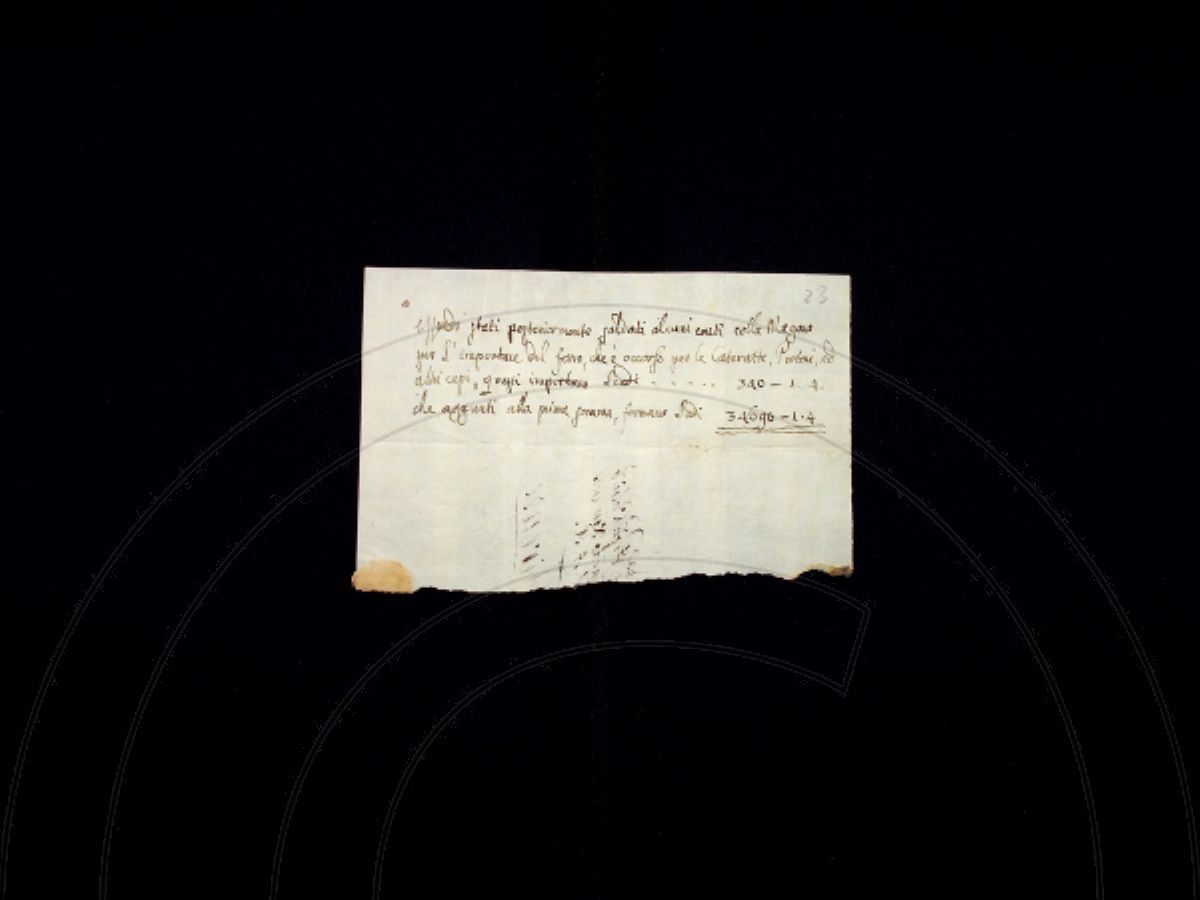 23
Essendo stati posteriormente saldati alcuni conti colla Magona
per l'importare del ferro, che è occorso per le Cateratte, Portoni, ed
altri capi, questi importano Scudi . . . . . 340 – 1. 4.
che aggiunti alla prima somma, formano Scudi 34696 – 1. 4